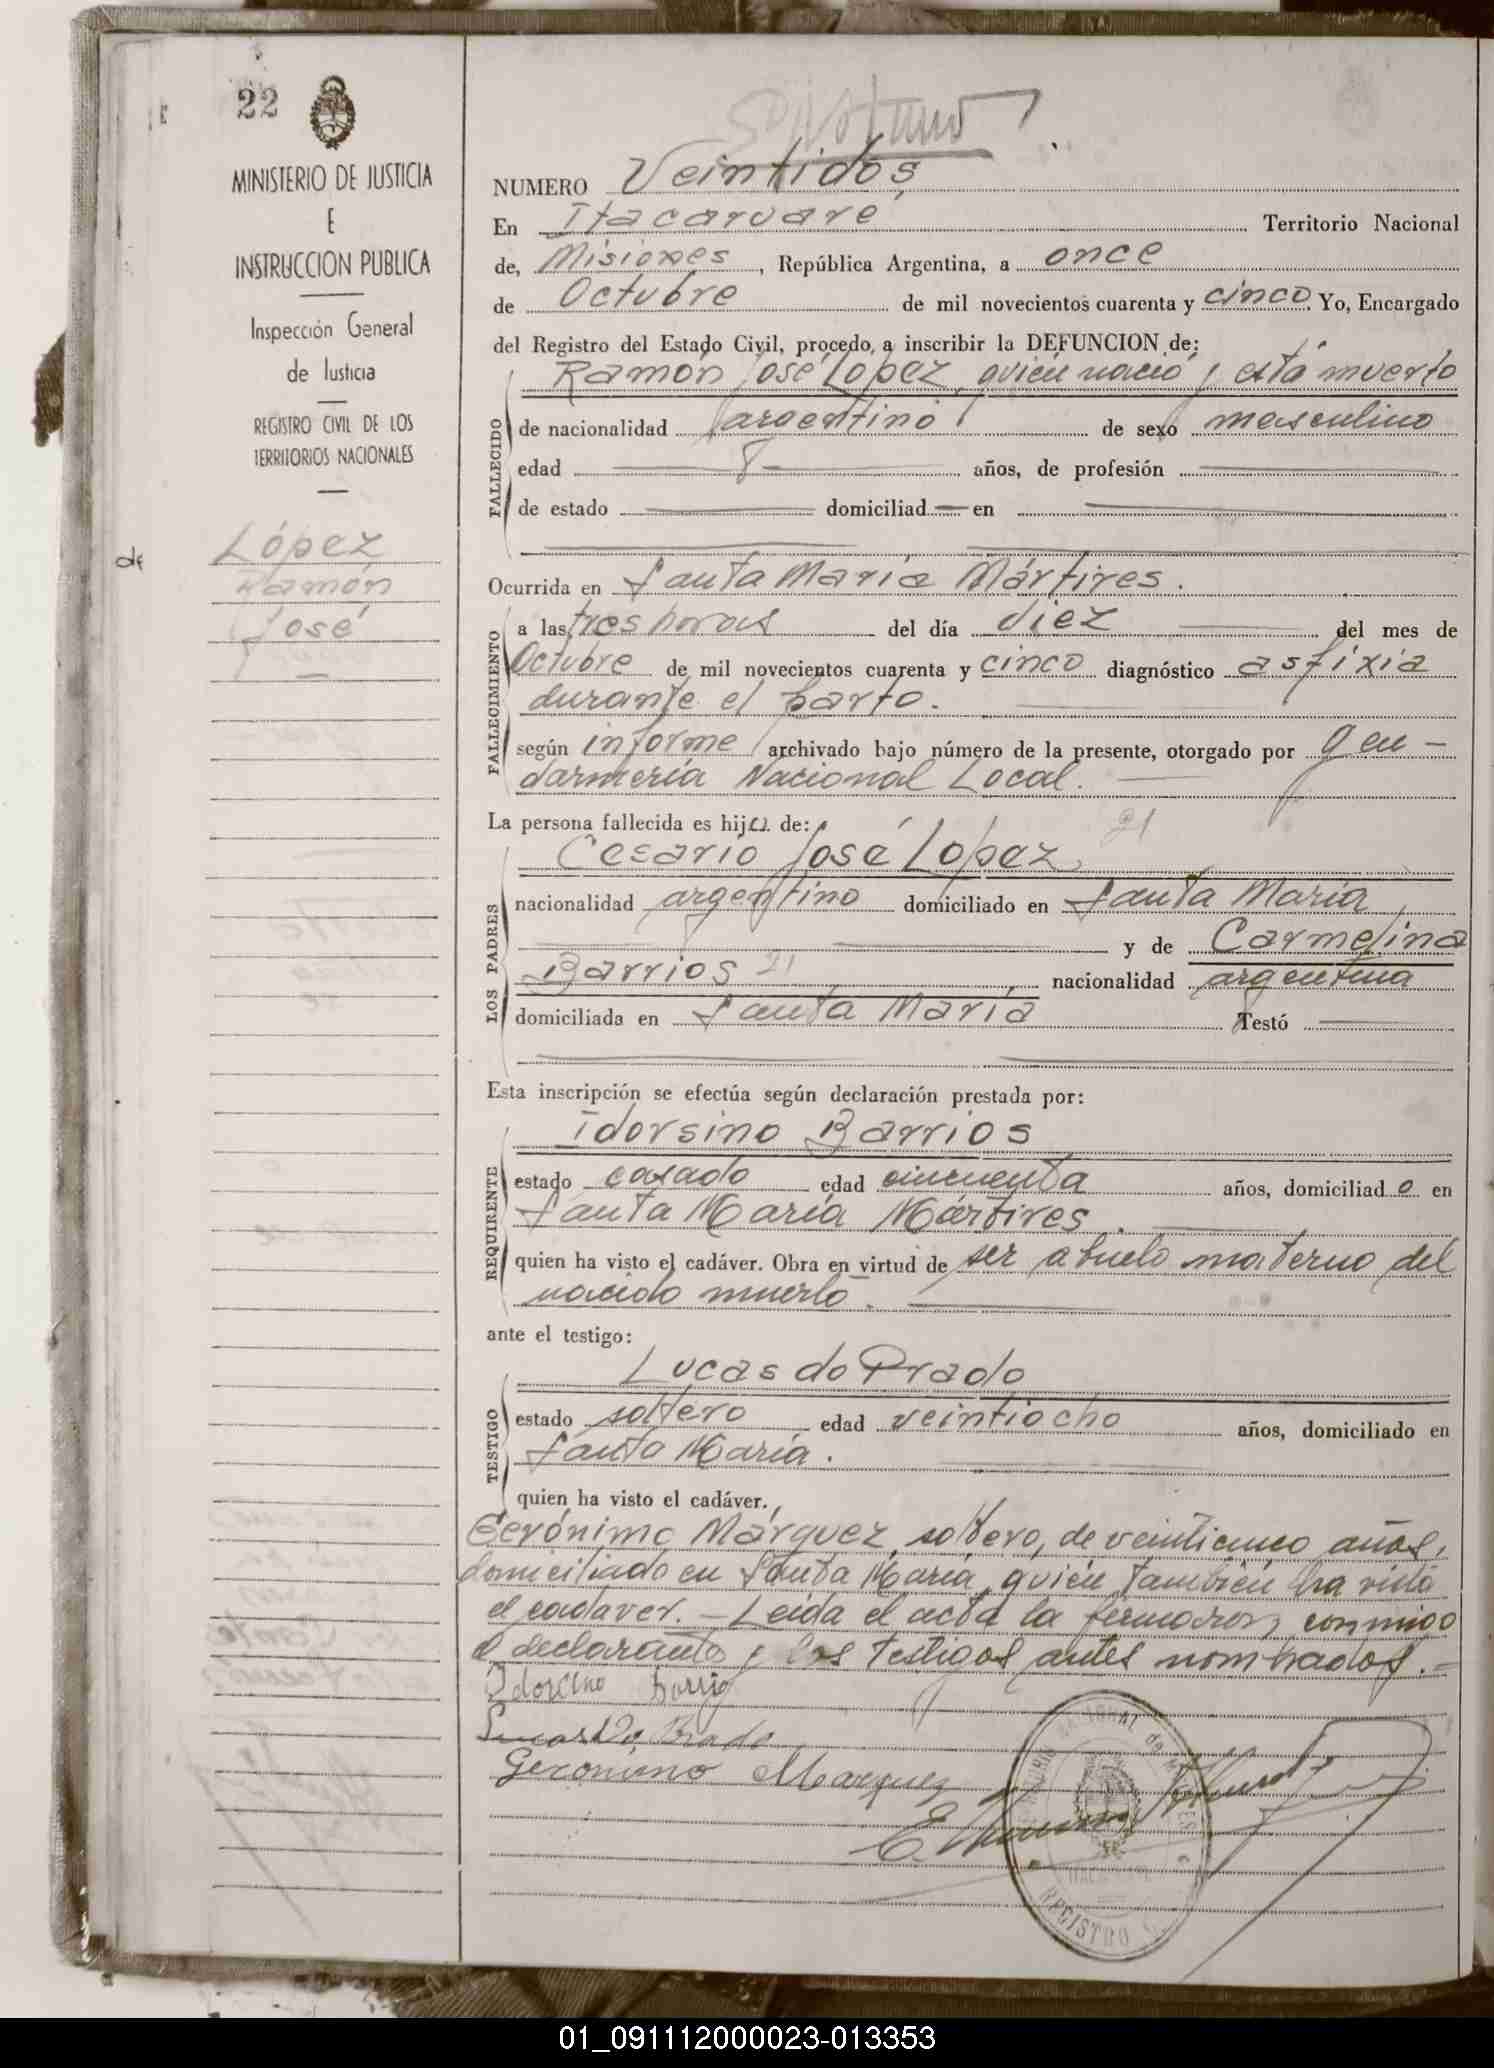 22
MINISTERIO DE JUSTICIA
E
INSTRUCCION PUBLICA
Inspección General
de Justicia
REGISTRO CIVIL DE LOS
TERRITORIOS NACIONALES
de
López
Ramón
José
NUMERO Veintidos
En Itacaruaré Territorio Nacional
de, Misiones, República Argentina, a once
de Octubre de mil novecientos cuarenta y cinco. Yo, Encargado
del Registro del Estado Civil, procedo, a inscribir la DEFUNCION de:
FALLECIDO
Ramón José López, quién nació y está muerto
de nacionalidad argentino de sexo masculino
edad años, de profesión
de estado domiciliad en
Ocurrida en Santa María Mártires.
FALLECIMIENTO
a las tres horas del día diez del mes de
Octubre de mil novecientos cuarenta y cinco diagnóstico asfixia
durante el parto.
según informe archivado bajo número de la presente, otorgado por gen-
darmería Nacional Local.
La persona fallecida es hijo de: 21
LOS PADRES
Cesario José López
nacionalidad argentino domiciliado en Santa María
y de Carmelina
Barrios 21, nacionalidad argentina
domiciliada en Santa María Testó
Esta inscripción se efectúa según declaración prestada por:
REQUIRENTE
Idorsino Barrios
estado casado edad cincuenta años, domiciliado en
Santa María Mártires.
quien ha visto el cadáver. Obra en virtud de ser abuelo materno del
nacido muerto.
ante el testigo:
TESTIGO
Lucas do Prado
estado soltero edad veintiocho años, domiciliado en
Santa María.
quien ha visto el cadáver.,
Gerónimo Márquez, soltero, de veinticinco años,
domiciliado en Santa María, quién también ha visto
el cadáver. - Leída el acta la firmaron, conmigo
el declarante y los testigos antes nombrados.-
Idorcino Barrios
Lucas Do Prado
Geronimo Marquez
REGISTRO
01_091112000023-013353